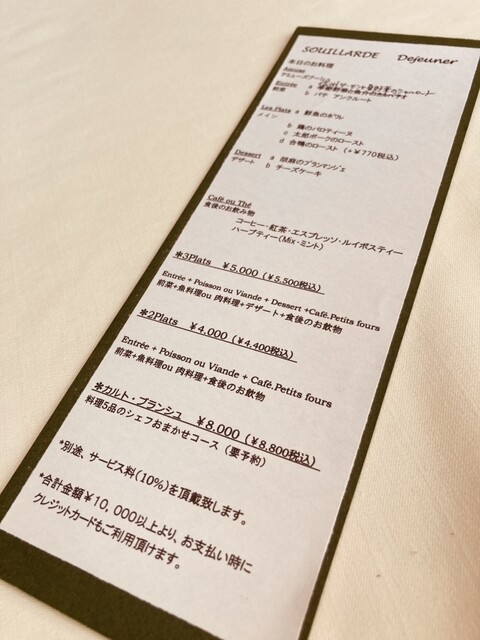 SOUILLARDE Dejeuner
本日のお料理
Amuse
アミューズブーシュ
Entrée a
前菜 b パテ アンクルート
Les Plats a 鮮魚のポワレ
メイン b 鶏のバロティーヌ
c 太郎ポークのロースト
d 合鴨のロースト (+¥770税込)
Dessert a 胡麻のブランマンジェ
デザート b チーズケーキ
Café ou Thé
食後のお飲み物
コーヒー・紅茶・エスプレッソ・ルイボスティー
ハーブティー(Mix・ミント)
＊3Plats ¥5,000 (¥5,500税込)
Entrée + Poisson ou Viande + Dessert +Café.Petits fours
前菜+魚料理ou 肉料理+デザート+食後のお飲物
＊2Plats ¥4,000 (¥4,400税込)
Entrée + Poisson ou Viande + Café.Petits fours
前菜+魚料理ou 肉料理+食後のお飲物
＊カルト・ブランシュ ¥8,000 (¥8,800税込)
料理5品のシェフおまかせコース (要予約)
*別途、サービス料(10%)を頂戴致します。
*合計金額¥10,000以上より、お支払い時に
クレジットカードもご利用頂けます。